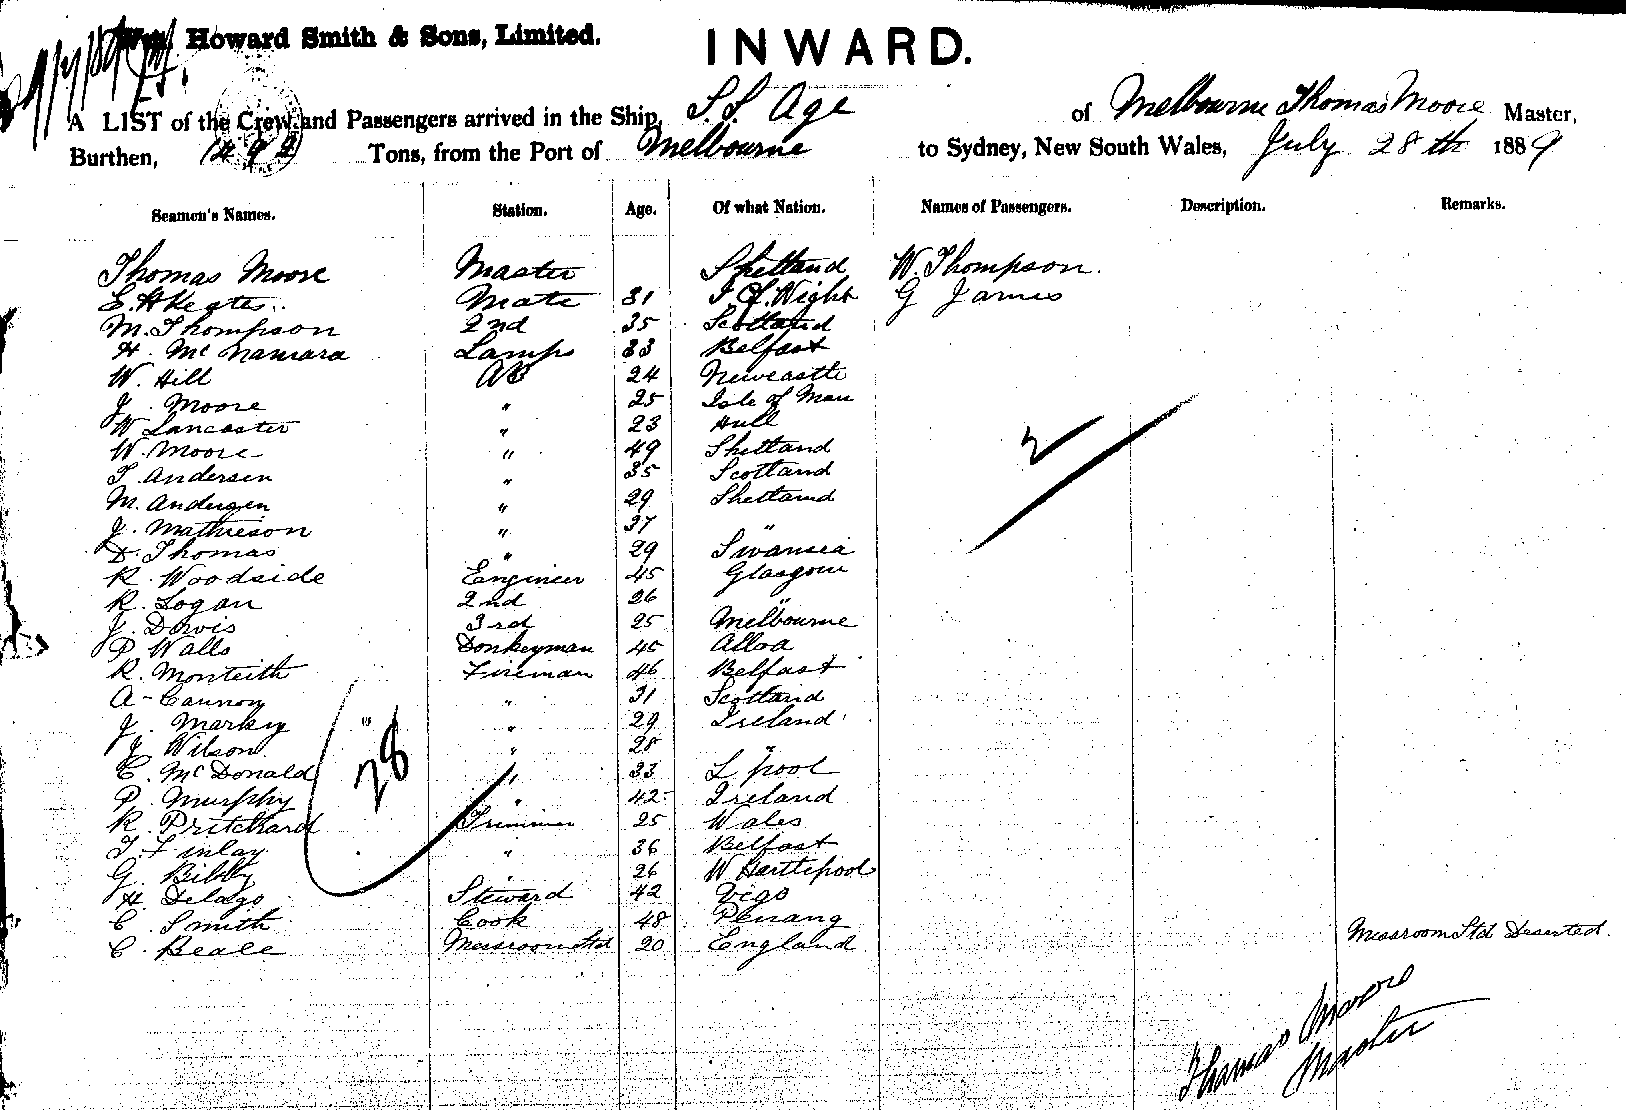 Howard Smith & Sons, Limited.
INWARD.
A LIST of the Crew and Passengers arrived in the Ship, S.S. Age of Melbourne Thomas Moore Master,
Burthen, Tons, from the Port of Melbourne to Sydney, New South Wales, July 28th 1889
Seamen's Names. Station. Age. Of what Nation. Names of Passengers. Description. Remarks.
Thomas Moore Master Shetland W. Thompson.
E. H Keates Mate 31 I. Of. Wight G James
M. Thompson 2nd 35 Scotland
H. Mc Namara Lamps 33 Belfast
W. Hill AB 24 Newcastle
J. Moore " 25 Isle of Man
W Lancaster " 23 Hull
W. Moore " 49 Shetland
T. Andersen " 35 Scotland
M. Andersen " 29 Shetland
J. Mathieson " 37 "
D. Thomas " 29 Swansea
R. Woodside Engineer 45 Glasgow
R. Logan 2nd 26 "
J. Davis 3rd 25 Melbourne
P Walls Donkeyman 45 Alloa
R. Monteith Fireman 46 Belfast
A - Cannon " 31 Scotland
J. Markey " 29 Ireland
J Wilson " 28 "
C. McDonald " 33 L'pool
P. Murphy " 42 Ireland
R. Pritchard Trimmer 25 Wales
T. Finlay " 36 Belfast
G. Bibby " 26 W Hartlepool
H. Delago Steward 42 Vigo
C. Smith Cook 48 Penang
C. Beale Messroom Std 20 England Messroom Std Deserted.
28
2
Thomas Moore
Master